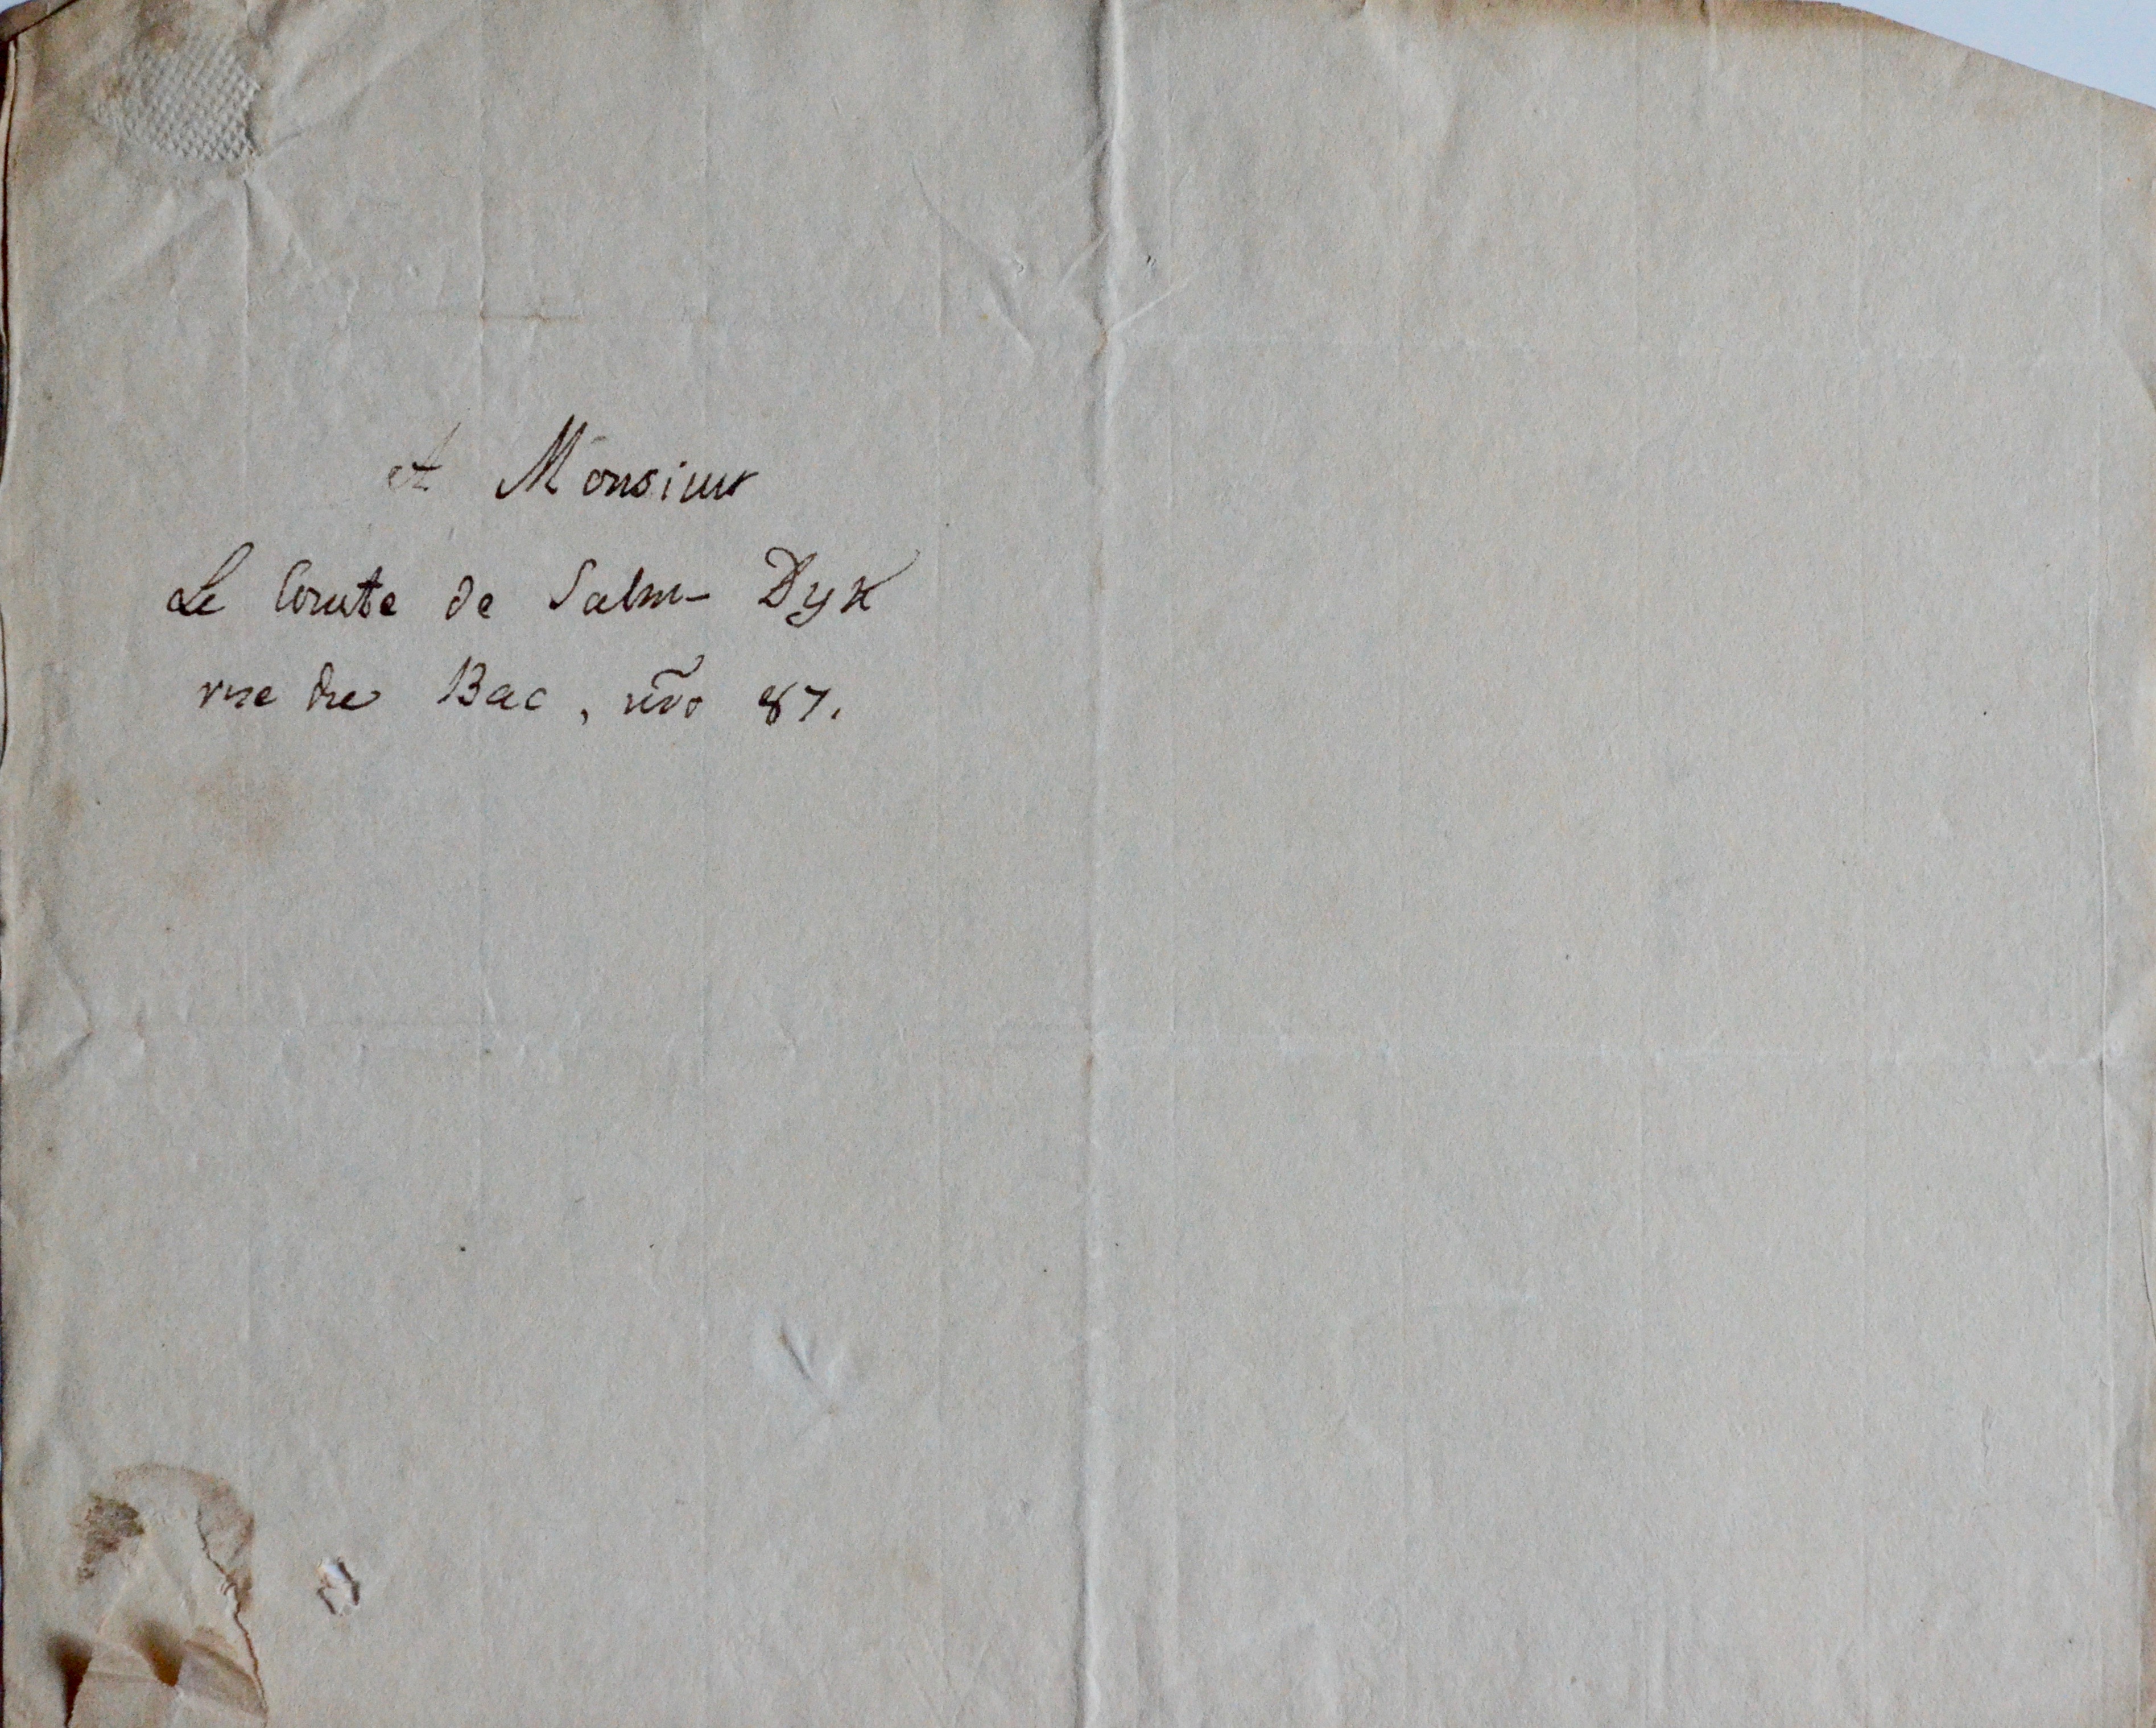 A Monsieur
Le Comte de Salm- Dyk
rue du Bac, nro 87.